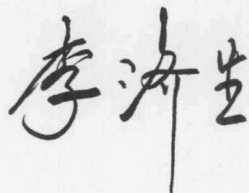 李济生